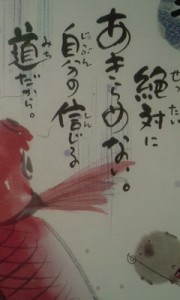 絶対に
あきらめない。
自分の信じる
道だから。